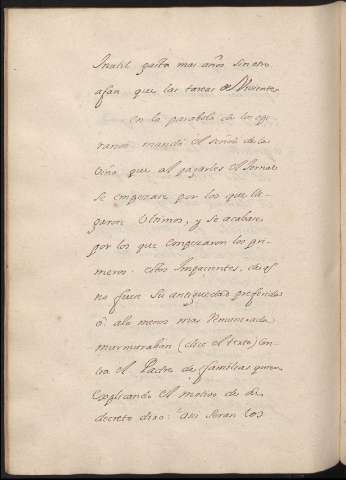 Inutil gasta mas años sin otro
afán que las tareas de Viviente.
en la parabola de los ope
rarios mandó el señor de la
viña que al pagarles el Jornal
se empezase por los que lle
garon Ultimos, y se acabase
por los que comenzaron los pri
meros. estos Impacientes, de q̃
no fuese Su antiguedad preferida
ó alo menos mas Remunerada
murmuraban (dice el texto) con
tra el Padre de familias quien
explicando el motivo de su
decreto dixo: asi seran los